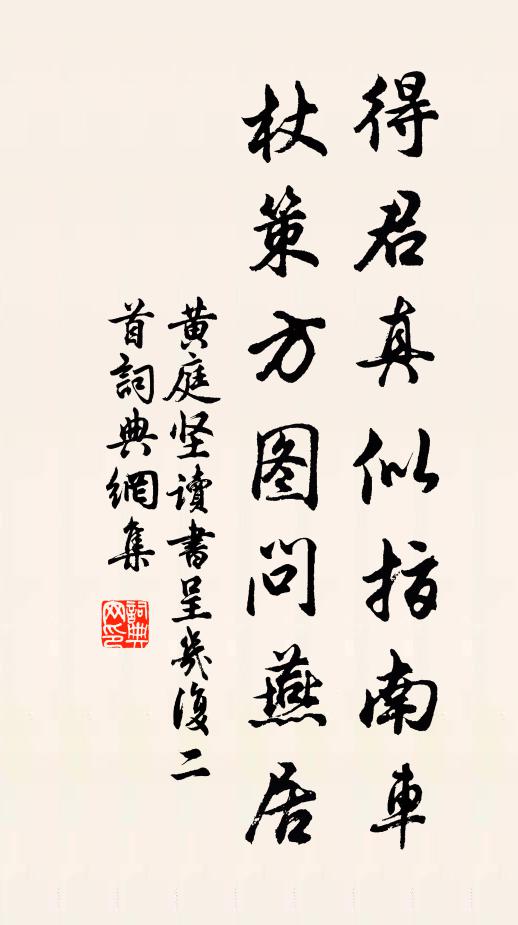 得君真似指南車
杖策方图問燕居
黄庭坚讀書呈幾復二
首詞典網集
詞典
网印